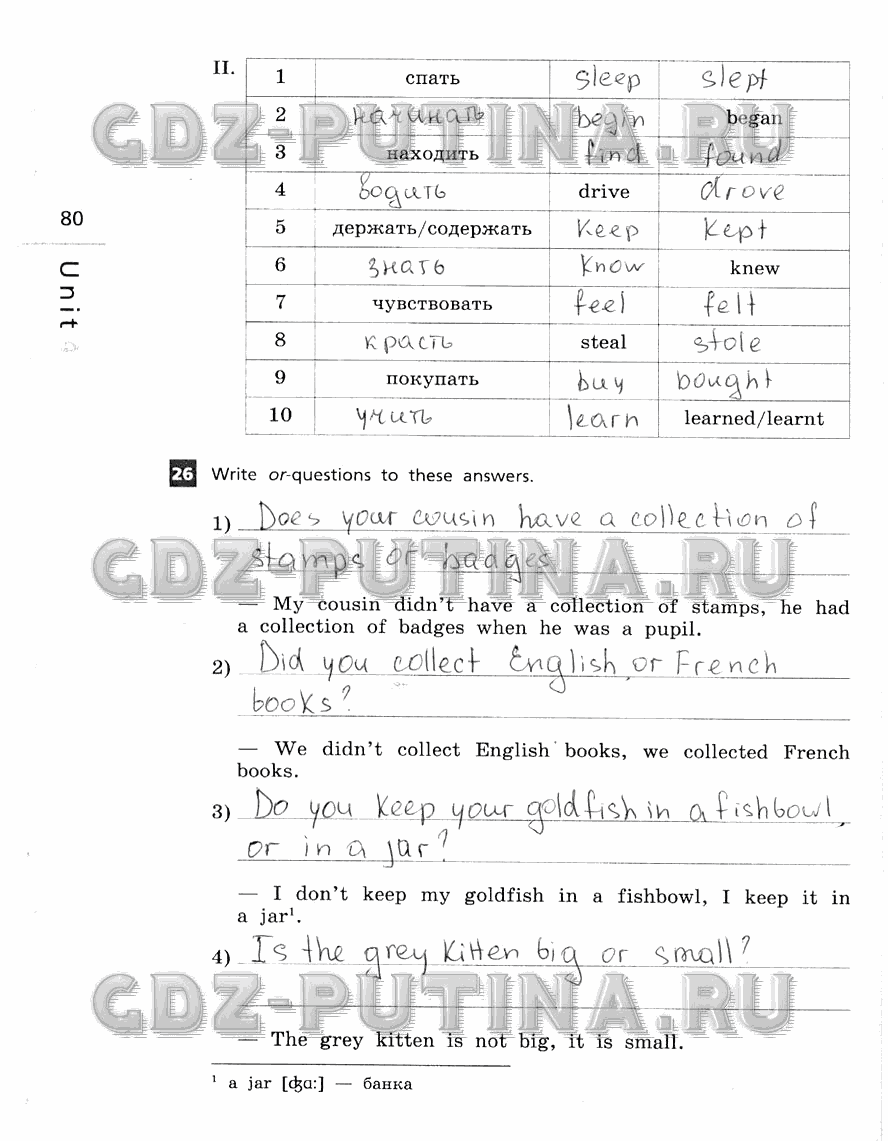 II.
1 спать sleep slept
2 начинать begin began
GDZ-PUTINA.RU
3 находить find found
4 водить drive drove
5 держать/содержать keep kept
6 знать know knew
7 чувствовать feel felt
8 красть steal stole
9 покупать buy bought
10 учить learn learned/learnt
80
Unit
26 Write or-questions to these answers.
1) Does your cousin have a collection of
stamps or badges
GDZ-PUTINA.RU
— My cousin didn't have a collection of stamps, he had
a collection of badges when he was a pupil.
2) Did you collect English or French
books?
— We didn't collect English books, we collected French
books.
3) Do you keep your goldfish in a fishbowl,
or in a jar?
— I don't keep my goldfish in a fishbowl, I keep it in
a jar¹.
4) Is the grey kitten big or small?
GDZ-PUTINA.RU
— The grey kitten is not big, it is small.
¹ a jar [ʤɑ:] — банка